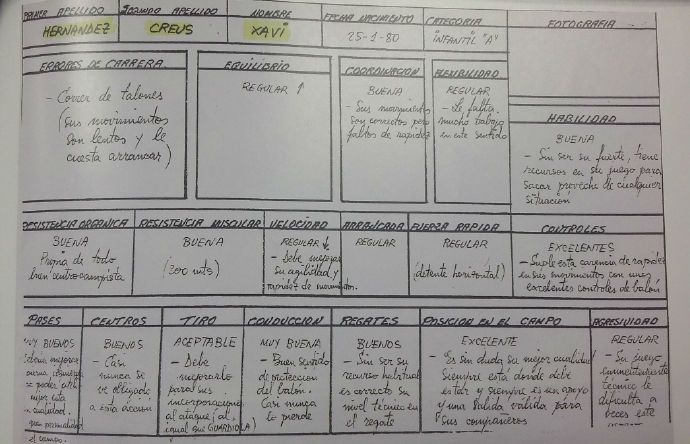 PRIMER APELLIDO
HERNANDEZ
SEGUNDO APELLIDO
CREUS
NOMBRE
XAVI
FECHA NACIMIENTO
25-1-80
CATEGORIA
INFANTIL "A"
FOTOGRAFIA
ERRORES DE CARRERA
- Correr de talones
(sus movimientos
son lentos y le
cuesta arrancar)
EQUILIBRIO
REGULAR ↑
COORDINACION
BUENA
- Sus movimientos
son correctos pero
faltos de rapidez
FLEXIBILIDAD
REGULAR
- Le falta
mucho trabajo
en este sentido
HABILIDAD
BUENA
- Sin ser su fuerte, tiene
recursos en su juego para
sacar provecho de cualquier
situación
RESISTENCIA ORGANICA
BUENA
Propia de todo
buen centrocampista
RESISTENCIA MUSCULAR
BUENA
(200 mts)
VELOCIDAD
REGULAR ↓
- Debe mejorar
su agilidad y
rapidez de movimientos.
ARRANCADA
REGULAR
FUERZA RAPIDA
REGULAR
(detente horizontal)
CONTROLES
EXCELENTES
- Suple esta carencia de rapidez
en sus movimientos con unos
excelentes controles de balón
PASES
MUY BUENOS
mejorar
se poder
calidad.
el campo.
CENTROS
BUENOS
- Casi
nunca se
ve obligado
a esta acción
TIRO
ACEPTABLE
- Debe
mejorarlo
para sus
incorporaciones
al ataque (al
igual que GUARDIOLA)
CONDUCCION
MUY BUENA
- Buen sentido
de protección
del balón.
Casi nunca
lo pierde
REGATES
BUENOS
- Sin ser su
recurso habitual
es correcto su
nivel técnico en
el regate
POSICION EN EL CAMPO
EXCELENTE
- Es sin duda su mejor cualidad
Siempre está donde debe
estar y siempre es un apoyo
y una salida válida para
sus compañeros
AGRESIVIDAD
REGULAR
- Su juego
eminentemente
técnico le
dificulta a
veces este